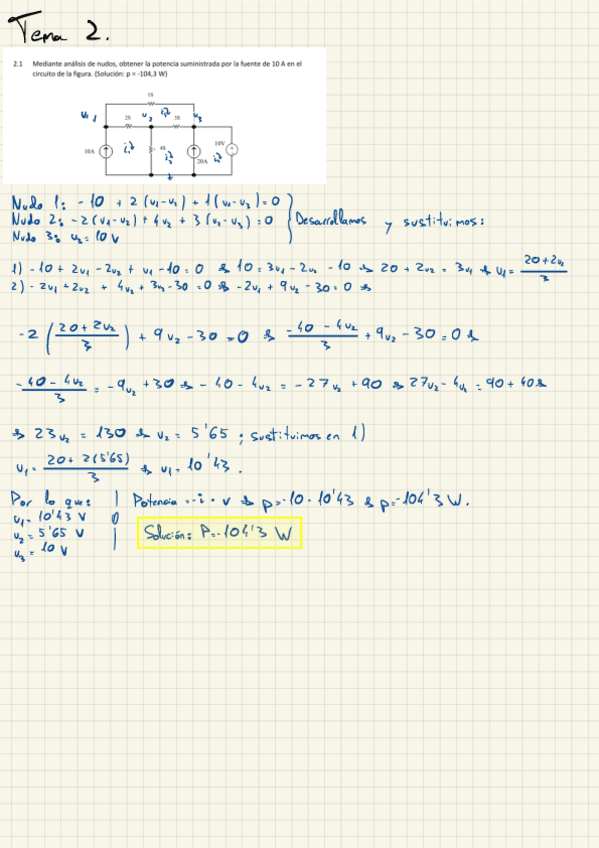 Tema 2.
2.1 Mediante análisis de nudos, obtener la potencia suministrada por la fuente de 10 A en el
circuito de la figura. (Solución: p = -104,3 W)
1S
v1 2S v2 3S v3
10A 4S 20A 10V
Nudo 1: -10 + 2(v1-v2) + 1(v1-v3)=0
Nudo 2: -2(v1-v2) + 4v2 + 3(v2-v3)=0 } Desarrollamos y sustituimos:
Nudo 3: v3 = 10 V
1) -10 + 2v1 - 2v2 + v1 - 10 = 0 → 10 = 3v1 - 2v2 - 10 → 20 + 2v2 = 3v1 → v1 = (20+2v2)/3
2) -2v1 + 2v2 + 4v2 + 3v2 - 30 = 0 → -2v1 + 9v2 - 30 = 0 →
-2 ( (20+2v2)/3 ) + 9v2 - 30 = 0 → (-40 - 4v2)/3 + 9v2 - 30 = 0 →
(-40 - 4v2)/3 = -9v2 + 30 → -40 - 4v2 = -27v2 + 90 → 27v2 - 4v2 = 90 + 40 →
→ 23v2 = 130 → v2 = 5'65 ; sustituimos en 1)
v1 = (20 + 2(5'65))/3 → v1 = 10'43.
Por lo que: | Potencia = -i · v → p = -10 · 10'43 → p = -104'3 W.
v1 = 10'43 V
v2 = 5'65 V | Solución: P = -104'3 W
v3 = 10 V